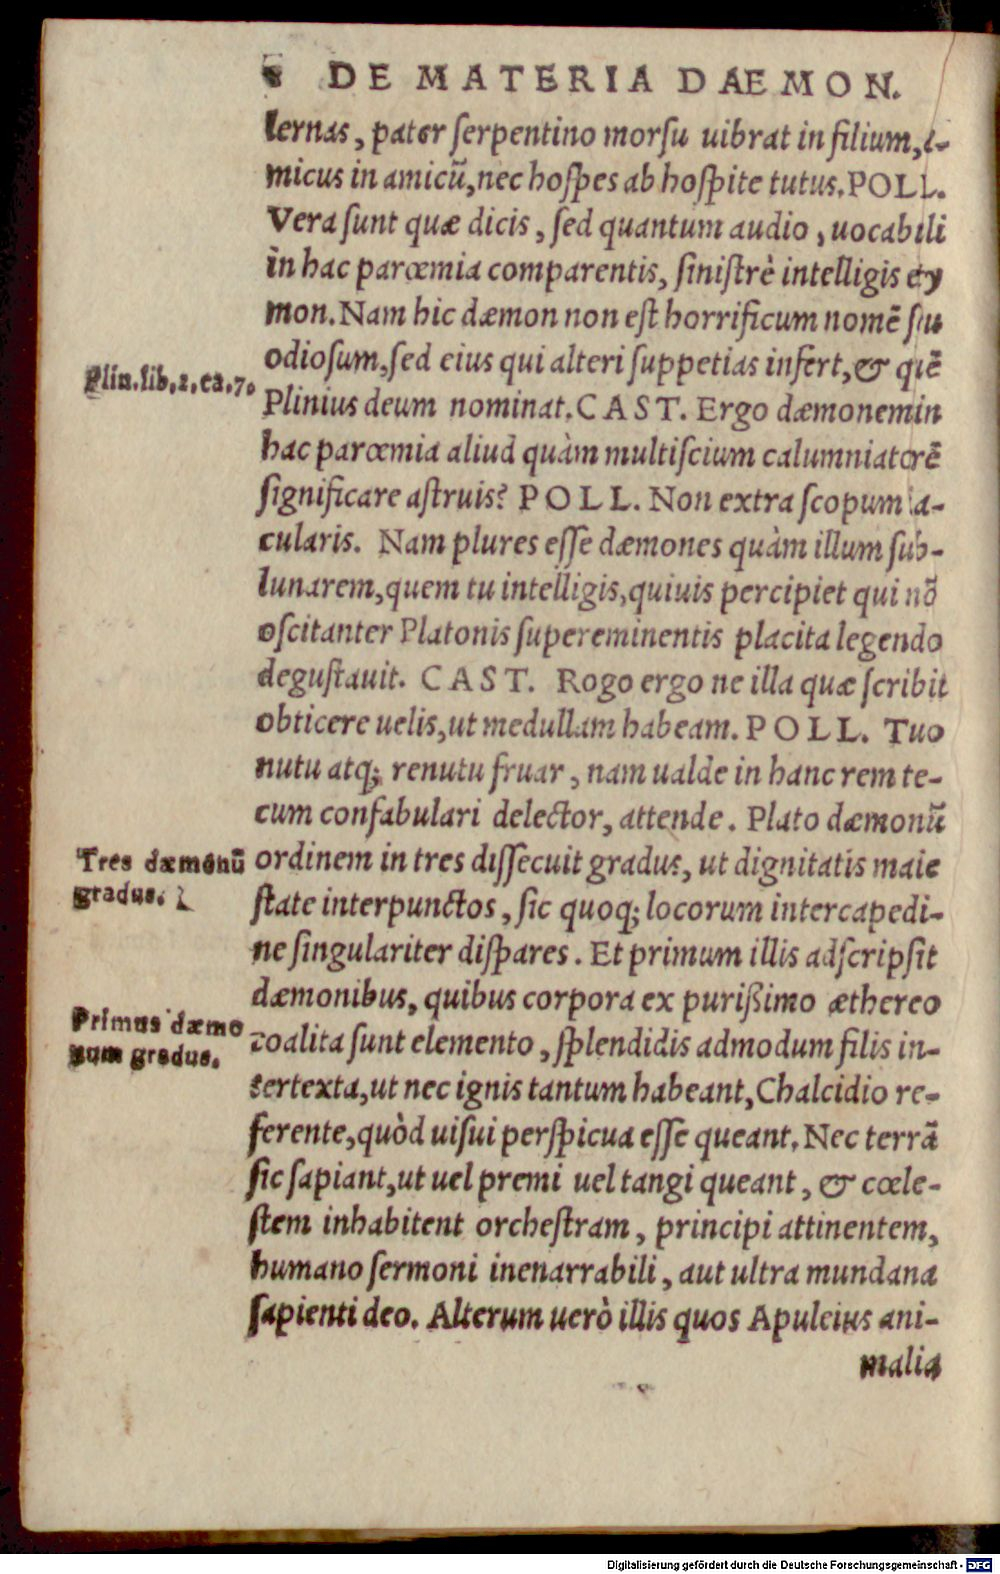 DE MATERIA DAEMON.
lernas, pater ſerpentino morſu uibrat in filium, a-
micus in amicũ, nec hoſpes ab hoſpite tutus. POLL.
Vera ſunt quæ dicis, ſed quantum audio, uocabili
in hac parœmia comparentis, ſiniſtrè intelligis ety
mon. Nam hic dæmon non eſt horrificum nomẽ ſeu
odioſum, ſed eius qui alteri ſuppetias infert, & quẽ
Plin. lib. 2. ca. 7.
Plinius deum nominat. CAST. Ergo dæmonem in
hac parœmia aliud quàm multiſcium calumniatorẽ
ſignificare aſtruis? POLL. Non extra ſcopum ia-
cularis. Nam plures eſſe dæmones quàm illum ſub-
lunarem, quem tu intelligis, quiuis percipiet qui nõ
oſcitanter Platonis ſupereminentis placita legendo
deguſtauit. CAST. Rogo ergo ne illa quæ ſcribit
obticere uelis, ut medullam habeam. POLL. Tuo
nutu atq; renutu fruar, nam ualde in hanc rem te-
cum confabulari delector, attende. Plato dæmonũ
Tres dæmonũ
gradus.
ordinem in tres diſſecuit gradus, ut dignitatis maie
ſtate interpunctos, ſic quoq; locorum intercapedi-
ne ſingulariter diſpares. Et primum illis adſcripſit
dæmonibus, quibus corpora ex purißimo æthereo
Primus dæmo
num gradus.
coalita ſunt elemento, ſplendidis admodum filis in-
tertexta, ut nec ignis tantum habeant, Chalcidio re-
ferente, quòd uiſui perſpicua eſſe queant. Nec terrã
ſic ſapiant, ut uel premi uel tangi queant, & cœle-
ſtem inhabitent orcheſtram, principi attinentem,
humano ſermoni inenarrabili, aut ultra mundana
ſapienti deo. Alterum uerò illis quos Apuleius ani-
malia
Digitalisierung gefördert durch die Deutsche Forschungsgemeinschaft - DFG